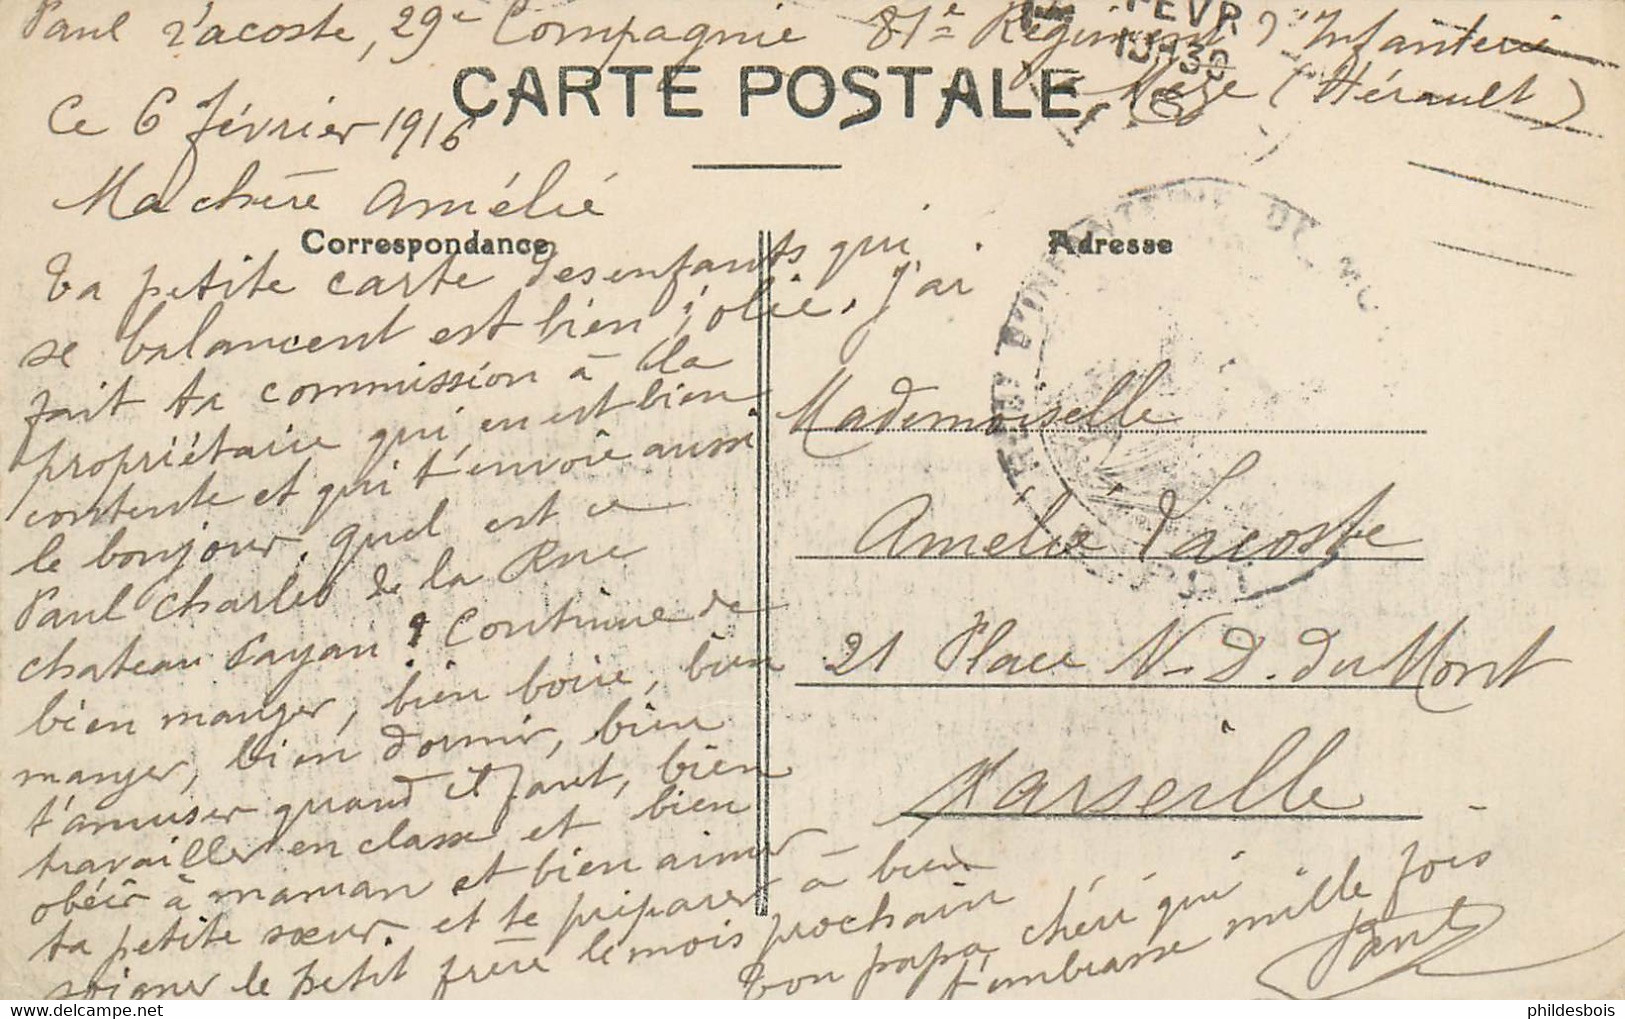 Paul Lacoste, 29e Compagnie 81e Régiment d'Infanterie
Mèze (Hérault)
FEVR
CARTE POSTALE
Ce 6 Février 1916
Ma chère Amélie
Correspondance
Adresse
Ta petite carte des enfants qui
se balancent est bien jolie. J'ai
fait ta commission à la
propriétaire qui en est bien
contente et qui t'envoie aussi
le bonjour. Quel est ce
Paul Charles de la Rue
chateau Payan ? Continue de
bien manger, bien boire, bien
manger, bien dormir, bien
t'amuser quand il faut, bien
travailler en classe et bien
obéir à maman et bien aimer
ta petite sœur. et te préparer à bien
soigner le petit frère le mois prochain
Ton papa chéri qui
t'embrasse mille fois
Paul
Mademoiselle
Amélie Lacoste
21 Place N-D. du Mont
Marseille
phildesbois